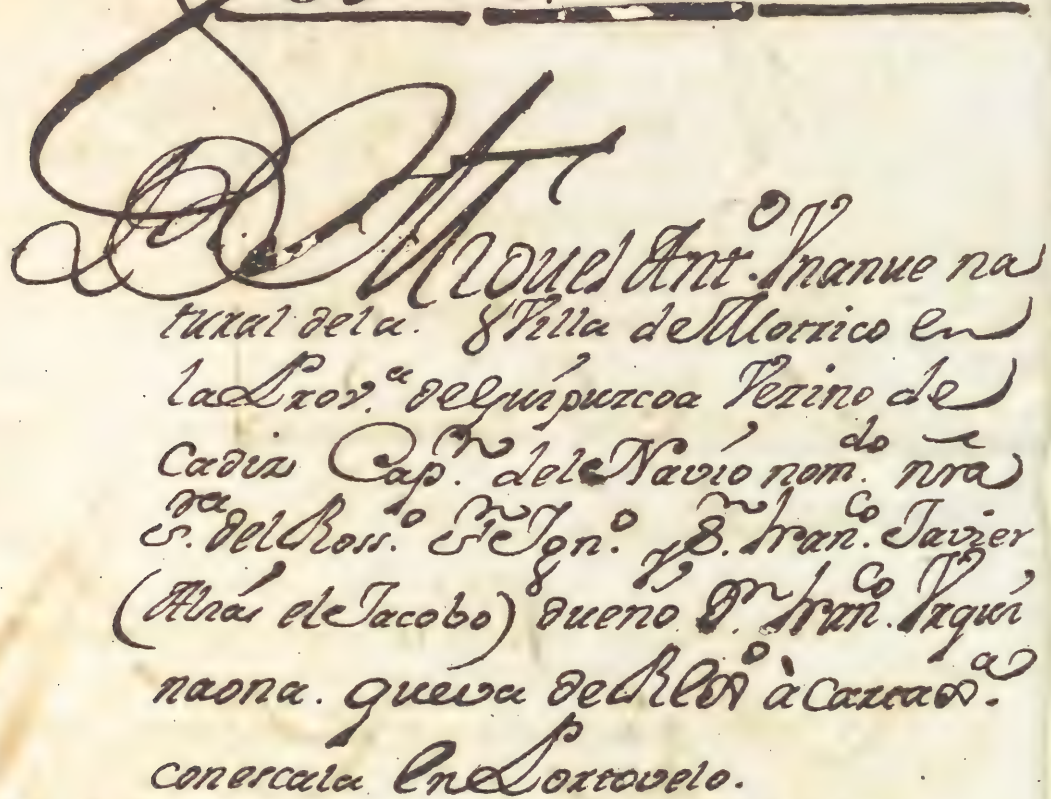 Miguel Ant.º Ynanue na
tural de la Villa de Motrico en
la Prov.ª de Guipuzcoa Vezino de
Cadiz Cap.n del Navio nom.do nra
S.ra del Ross.o S.n Ygn.o y S.n Fran.co Javier
(Alias el Jacobo) dueno D.n Fran.co Yzqui
naona. que va de Rexº à Cartag.a
con escala en Portovelo.